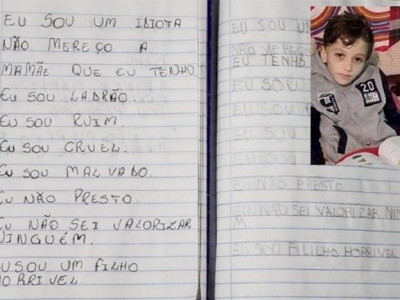 EU SOU UM IDIOTA
NÃO MEREÇO A
MAMÃE QUE EU TENHO
EU SOU LADRÃO.
EU SOU RUIM.
EU SOU CRUEL.
EU SOU MALVADO.
EU NÃO PRESTO.
EU NÃO SEI VALORIZAR
NINGUÉM.
EU SOU UM FILHO
HORRIVEL.
EU SOU
NÃO
EU TENHO
EU SOU
EU SOU
EU SOU
EU NÃO PRESTO
EU NÃO SEI VALORIZAR NIN
M
EU SOU FILILHO HORRIVEL
20